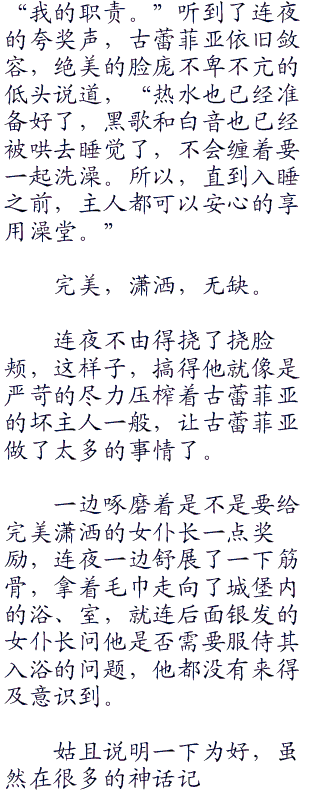 “我的职责。”听到了连夜
的夸奖声，古蕾菲亚依旧敛
容，绝美的脸庞不卑不亢的
低头说道，“热水也已经准
备好了，黑歌和白音也已经
被哄去睡觉了，不会缠着要
一起洗澡。所以，直到入睡
之前，主人都可以安心的享
用澡堂。”
完美，潇洒，无缺。
连夜不由得挠了挠脸
颊，这样子，搞得他就像是
严苛的尽力压榨着古蕾菲亚
的坏主人一般，让古蕾菲亚
做了太多的事情了。
一边啄磨着是不是要给
完美潇洒的女仆长一点奖
励，连夜一边舒展了一下筋
骨，拿着毛巾走向了城堡内
的浴、室，就连后面银发的
女仆长问他是否需要服侍其
入浴的问题，他都没有来得
及意识到。
姑且说明一下为好，虽
然在很多的神话记